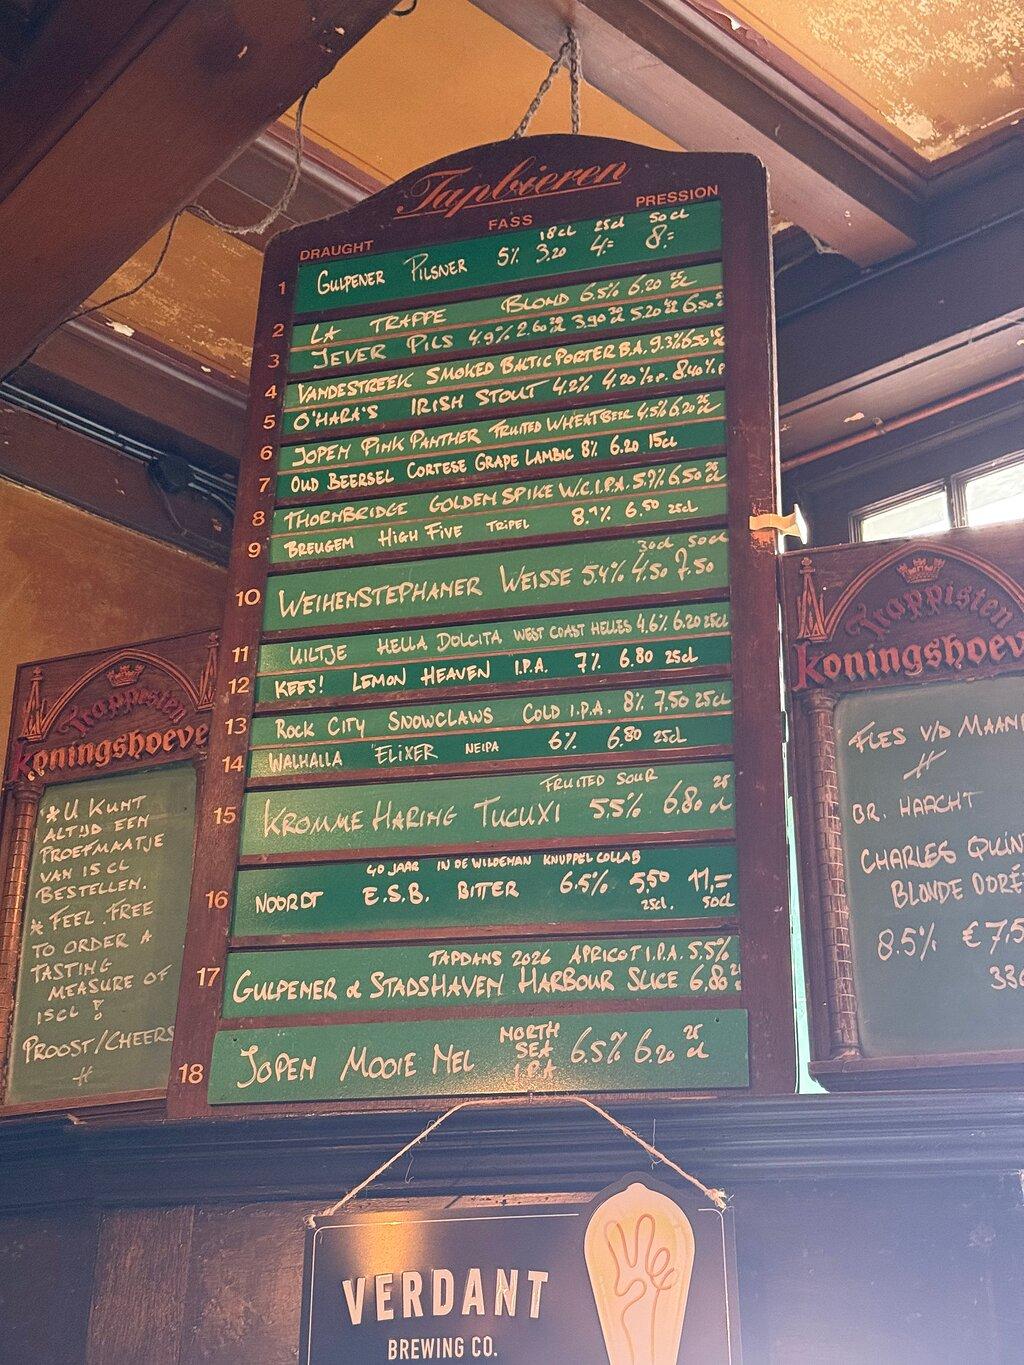 Tapbieren
DRAUGHT FASS PRESSION
18cl 25cl 50cl
1 GULPENER PILSNER 5% 3,20 4,= 8,=
2 LA TRAPPE BLOND 6.5% 6.20 25cl
3 JEVER PILS 4.9% 2.60 3.90 5.20 6,50
4 VANDESTREEK SMOKED BALTIC PORTER B.A. 9.3% 6.50 15
5 O'HARA'S IRISH STOUT 4.2% 4.20 ½p. 8.40 p
6 JOPEN PINK PANTHER FRUITED WHEATBEER 4.5% 6.20 25cl
7 OUD BEERSEL CORTESE GRAPE LAMBIC 8% 6.20 15cl
8 THORNBRIDGE GOLDEN SPIKE W.C.I.P.A. 5.9% 6.50 25cl
9 BREUGEM HIGH FIVE TRIPEL 6.50 25cl
30cl 50cl
10 WEIHENSTEPHANER WEISSE 5.4% 4.50 7.50
11 UILTJE HELLA DOLCITA WEST COAST HELLES 4,6% 6.20 25cl
12 KEES! LEMON HEAVEN I.P.A. 7% 6.80 25cl
13 ROCK CITY SNOWCLAWS COLD I.P.A. 8% 7,50 25cl
14 WALHALLA ELIXER NEIPA 6% 6.80 25cl
FRUITED SOUR
15 KROMME HARING TUCUXI 5.5% 6.80 25cl
40 JAAR IN DE WILDEMAN KNUPPEL COLLAB
16 NOORDT E.S.B. BITTER 6.5% 5,50 11,=
25cl. 50cl
TAPDANS 2026 APRICOT I.P.A. 5.5%
17 GULPENER & STADSHAVEN HARBOUR SLICE 6,80
18 JOPEN MOOIE NEL NORTH SEA I.P.A 6.5% 6.20 25cl
Trappisten
Koningshoeve
*U KUNT
ALTIJD EEN
PROEFMAATJE
VAN 15 CL
BESTELLEN.
* FEEL FREE
TO ORDER A
TASTING
MEASURE OF
15CL !
PROOST/CHEERS
Trappisten
Koningshoev
FLES V/D MAAN
BR. HAACHT
CHARLES QUIN
BLONDE DORÉ
8.5% €7,5
33c
VERDANT
BREWING CO.